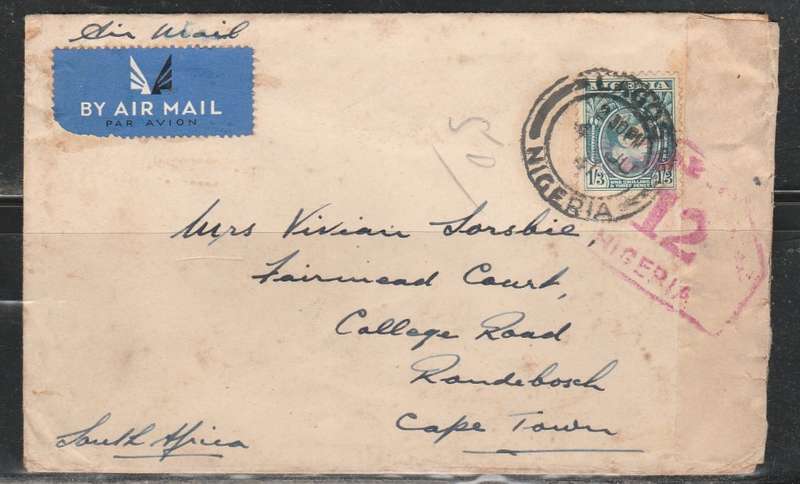 Air Mail
BY AIR MAIL
PAR AVION
LAGOS
NIGERIA
NIGERIA
1/3 ONE SHILLING & THREE PENCE 1/3
12
NIGERIA
/05
Mrs Vivian Sorsbie,
Fairmead Court,
College Road
Rondebosch
Cape Town
South Africa